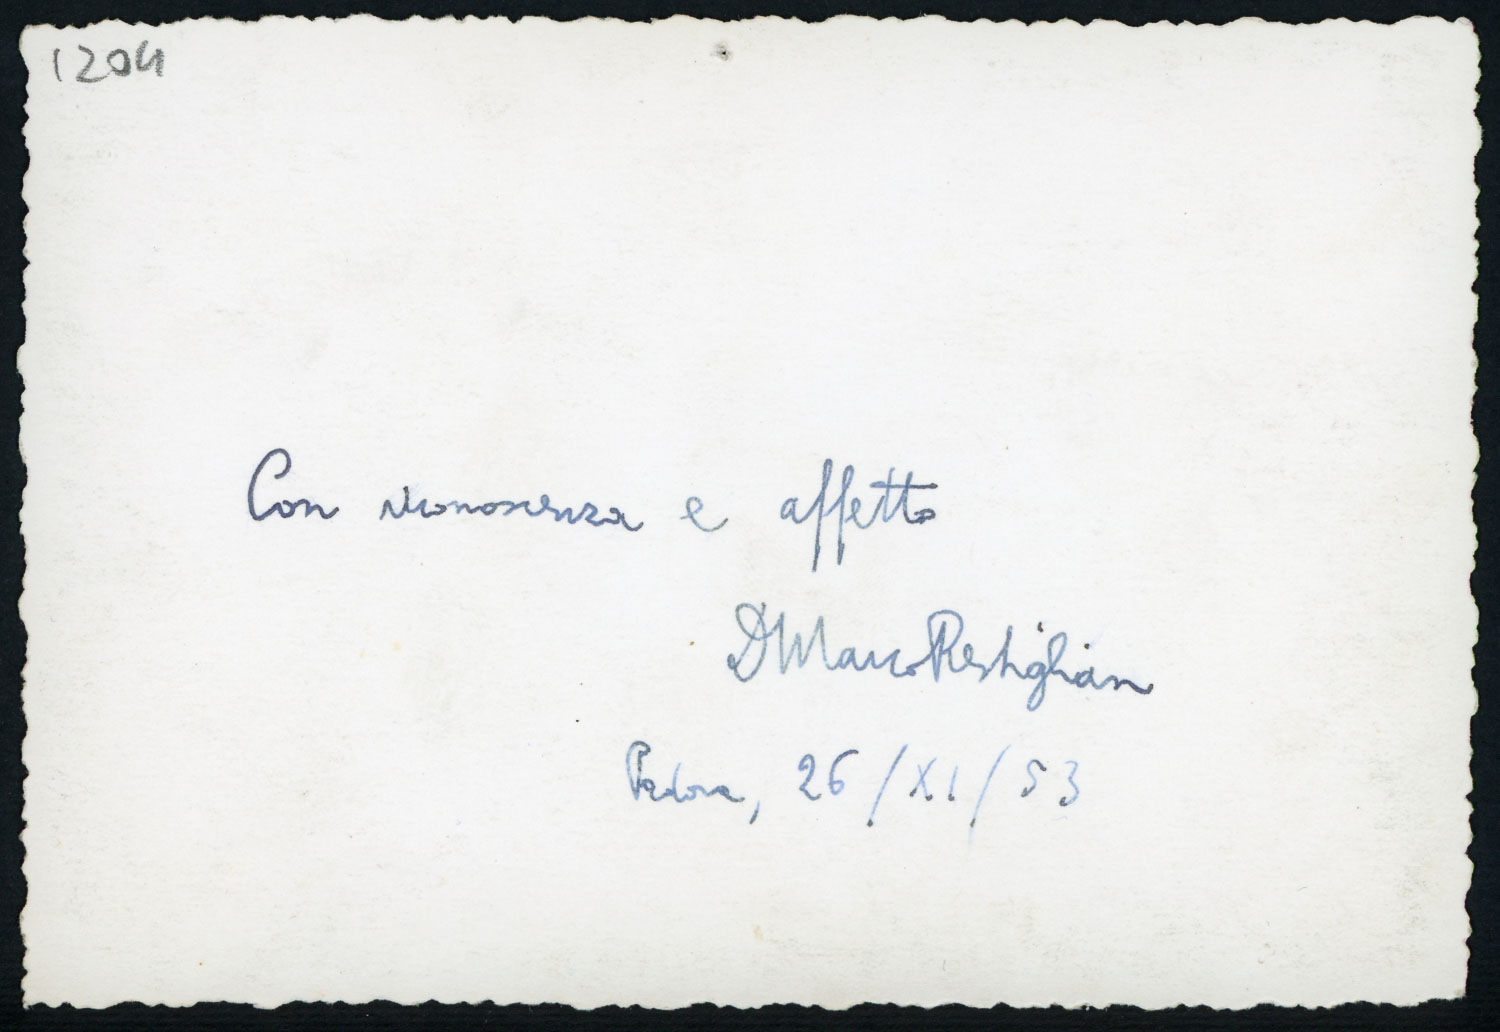 1204
Con riconoscenza e affetto
D Marco Restiglian
Padova, 26/XI/53